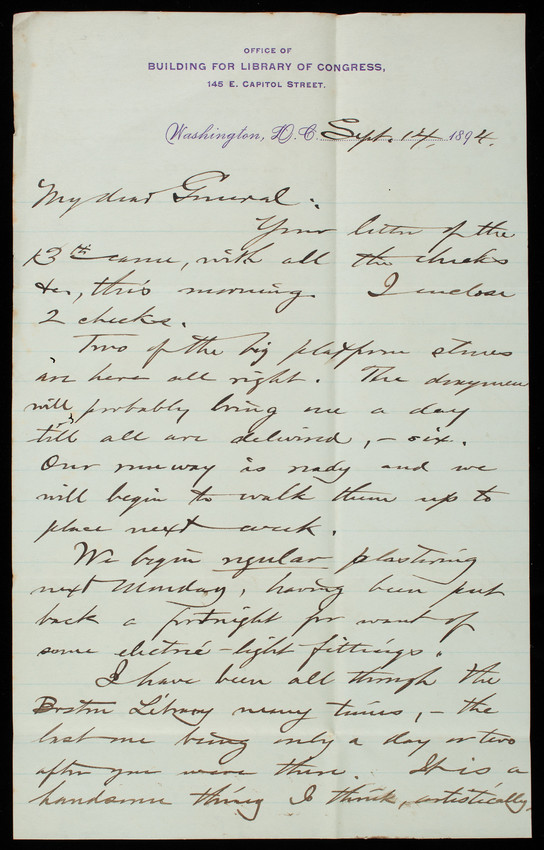 OFFICE OF
BUILDING FOR LIBRARY OF CONGRESS,
145 E. CAPITOL STREET.
Washington, D.C. Sept. 14, 1894.
My dear General:
Your letter of the
13th came, with all the checks
&c, this morning. I enclose
2 checks.
Two of the big platform stones
are here all right. The draymen
will, probably bring one a day
till all are delivered, – six.
Our runway is ready and we
will begin to walk them up to
place next week.
We begin regular plastering
next Monday, having been put
back a fortnight for want of
some electric-light fittings.
I have been all through the
Boston Library many times, – the
last one being only a day or two
after you were there. It is a
handsome thing I think, artistically,